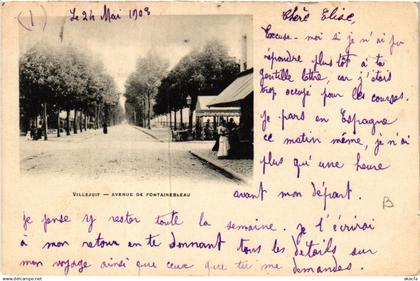 Le 24 Mai 1903
Chère Elise,
Excuse-moi si je n'ai pu
répondre plus tôt à ta
gentille lettre, car j'étais
trop occupé pour les courses.
je pars en Espagne
ce matin même, je n'ai
plus qu'une heure
avant mon départ.
VILLEJUIF — AVENUE DE FONTAINEBLEAU
B
je pense y rester toute la semaine. je t'écrirai
à mon retour en te donnant tous les détails sur
mon voyage ainsi que ceux que tu me demandes.
akafa.com